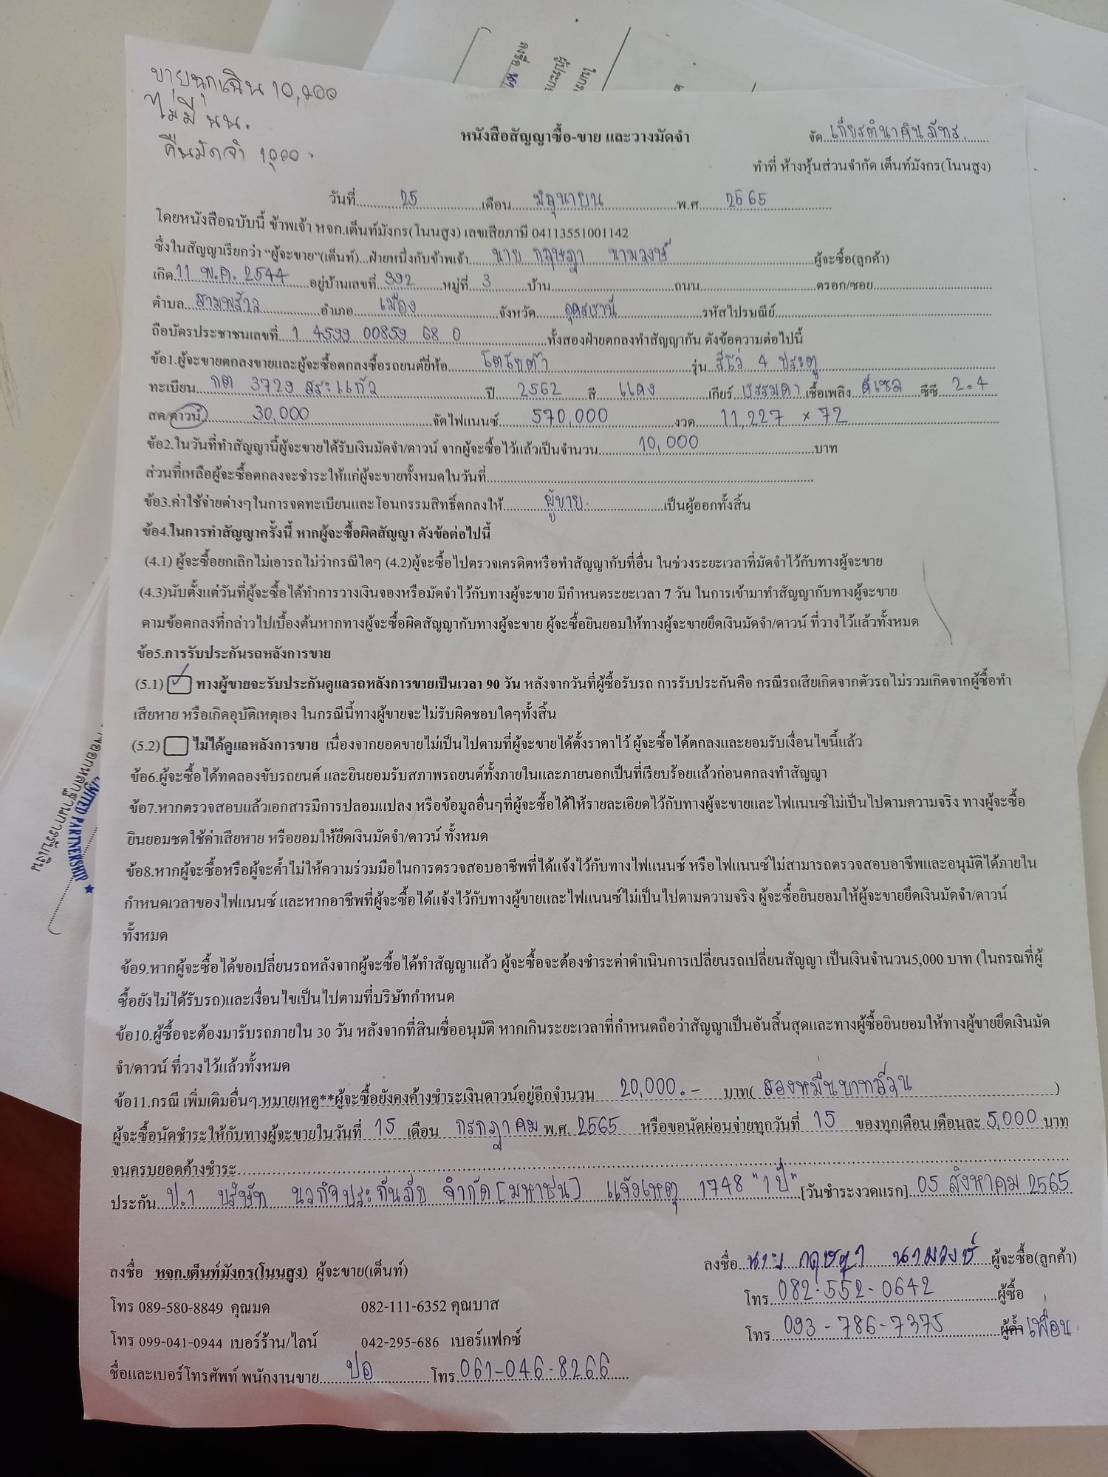 ขายฉุกเฉิน 10,000
ไม่มี นน.
คืนมัดจำ 1000.
หนังสือสัญญาซื้อ-ขาย และวางมัดจำ
จัด เกียรตินาคินภัทร
ทำที่ ห้างหุ้นส่วนจำกัด เต็นท์มังกร(โนนสูง)
วันที่ 25 เดือน มิถุนายน พ.ศ 2565
โดยหนังสือฉบับนี้ ข้าพเจ้า หจก.เต็นท์มังกร(โนนสูง) เลขเสียภาษี 04113551001142
ซึ่งในสัญญาเรียกว่า "ผู้จะขาย"(เต็นท์)...ฝ่ายหนึ่งกับข้าพเจ้า นาย กฤษฎา นามวงษ์ ผู้จะซื้อ(ลูกค้า)
เกิด 11 พ.ค. 2544 อยู่บ้านเลขที่ 392 หมู่ที่ 3 บ้าน ถนน ตรอก/ซอย
ตำบล สามพร้าว อำเภอ เมือง จังหวัด อุดรธานี รหัสไปรษณีย์
ถือบัตรประชาชนเลขที่ 1 4599 00859 68 0 ทั้งสองฝ่ายตกลงทำสัญญากัน ดังข้อความต่อไปนี้
ข้อ1.ผู้จะขายตกลงขายและผู้จะซื้อตกลงซื้อรถยนต์ยี่ห้อ โตโยต้า รุ่น รีโว่ 4 ประตู
ทะเบียน กต 3729 สระแก้ว ปี 2562 สี แดง เกียร์ ธรรมดา เชื้อเพลิง ดีเซล ซีซี 2.4
สด/ดาวน์ 30,000 จัดไฟแนนซ์ 570,000 งวด 11,227 × 72
ข้อ2.ในวันที่ทำสัญญานี้ผู้จะขายได้รับเงินมัดจำ/ดาวน์ จากผู้จะซื้อไว้แล้วเป็นจำนวน 10,000 บาท
ส่วนที่เหลือผู้จะซื้อตกลงจะชำระให้แก่ผู้จะขายทั้งหมดในวันที่
ข้อ3.ค่าใช้จ่ายต่างๆในการจดทะเบียนและโอนกรรมสิทธิ์ตกลงให้ ผู้ขาย เป็นผู้ออกทั้งสิ้น
ข้อ4.ในการทำสัญญาครั้งนี้ หากผู้จะซื้อผิดสัญญา ดังข้อต่อไปนี้
(4.1) ผู้จะซื้อยกเลิกไม่เอารถไม่ว่ากรณีใดๆ (4.2)ผู้จะซื้อไปตรวจเครดิตหรือทำสัญญากับที่อื่น ในช่วงระยะเวลาที่มัดจำไว้กับทางผู้จะขาย
(4.3)นับตั้งแต่วันที่ผู้จะซื้อได้ทำการวางเงินจองหรือมัดจำไว้กับทางผู้จะขาย มีกำหนดระยะเวลา 7 วัน ในการเข้ามาทำสัญญากับทางผู้จะขาย
ตามข้อตกลงที่กล่าวไปเบื้องต้นหากทางผู้จะซื้อผิดสัญญากับทางผู้จะขาย ผู้จะซื้อยินยอมให้ทางผู้จะขายยึดเงินมัดจำ/ดาวน์ ที่วางไว้แล้วทั้งหมด
ข้อ5.การรับประกันรถหลังการขาย
(5.1) ทางผู้ขายจะรับประกันดูแลรถหลังการขายเป็นเวลา 90 วัน หลังจากวันที่ผู้ซื้อรับรถ การรับประกันคือ กรณีรถเสียเกิดจากตัวรถไม่รวมเกิดจากผู้ซื้อทำ
เสียหาย หรือเกิดอุบัติเหตุเอง ในกรณีนี้ทางผู้ขายจะไม่รับผิดชอบใดๆทั้งสิ้น
(5.2) ไม่ได้ดูแลหลังการขาย เนื่องจากยอดขายไม่เป็นไปตามที่ผู้จะขายได้ตั้งราคาไว้ ผู้จะซื้อได้ตกลงและยอมรับเงื่อนไขนี้แล้ว
ข้อ6.ผู้จะซื้อได้ทดลองขับรถยนต์ และยินยอมรับสภาพรถยนต์ทั้งภายในและภายนอกเป็นที่เรียบร้อยแล้วก่อนตกลงทำสัญญา
ข้อ7.หากตรวจสอบแล้วเอกสารมีการปลอมแปลง หรือข้อมูลอื่นๆที่ผู้จะซื้อได้ให้รายละเอียดไว้กับทางผู้จะขายและไฟแนนซ์ไม่เป็นไปตามความจริง ทางผู้จะซื้อ
ยินยอมชดใช้ค่าเสียหาย หรือยอมให้ยึดเงินมัดจำ/ดาวน์ ทั้งหมด
ข้อ8.หากผู้จะซื้อหรือผู้จะค้ำไม่ให้ความร่วมมือในการตรวจสอบอาชีพที่ได้แจ้งไว้กับทางไฟแนนซ์ หรือไฟแนนซ์ไม่สามารถตรวจสอบอาชีพและอนุมัติได้ภายใน
กำหนดเวลาของไฟแนนซ์ และหากอาชีพที่ผู้จะซื้อได้แจ้งไว้กับทางผู้ขายและไฟแนนซ์ไม่เป็นไปตามความจริง ผู้จะซื้อยินยอมให้ผู้จะขายยึดเงินมัดจำ/ดาวน์
ทั้งหมด
ข้อ9.หากผู้จะซื้อได้ขอเปลี่ยนรถหลังจากผู้จะซื้อได้ทำสัญญาแล้ว ผู้จะซื้อจะต้องชำระค่าดำเนินการเปลี่ยนรถเปลี่ยนสัญญา เป็นเงินจำนวน5,000 บาท (ในกรณที่ผู้
ซื้อยังไม่ได้รับรถ)และเงื่อนไขเป็นไปตามที่บริษัทกำหนด
ข้อ10.ผู้ซื้อจะต้องมารับรถภายใน 30 วัน หลังจากที่สินเชื่ออนุมัติ หากเกินระยะเวลาที่กำหนดถือว่าสัญญาเป็นอันสิ้นสุดและทางผู้ซื้อยินยอมให้ทางผู้ขายยึดเงินมัด
จำ/ดาวน์ ที่วางไว้แล้วทั้งหมด
ข้อ11.กรณี เพิ่มเติมอื่นๆ.หมายเหตุ**ผู้จะซื้อยังคงค้างชำระเงินดาวน์อยู่อีกจำนวน 20,000.- บาท( สองหมื่นบาทถ้วน )
ผู้จะซื้อนัดชำระให้กับทางผู้จะขายในวันที่ 15 เดือน กรกฎาคม พ.ศ. 2565 หรือขอนัดผ่อนจ่ายทุกวันที่ 15 ของทุกเดือน เดือนละ 5,000 บาท
จนครบยอดค้างชำระ
ประกัน ป.1 บริษัท นวกิจประกันภัย จำกัด [มหาชน] แจ้งเหตุ 1748 "1 ปี" [วันชำระงวดแรก] 05 สิงหาคม 2565
ลงชื่อ หจก.เต็นท์มังกร(โนนสูง) ผู้จะขาย(เต็นท์)
ลงชื่อ นาย กฤษฎา นามวงษ์ ผู้จะซื้อ(ลูกค้า)
โทร 089-580-8849 คุณมด 082-111-6352 คุณบาส
โทร 082-552-0642 ผู้ซื้อ
โทร 099-041-0944 เบอร์ร้าน/ไลน์ 042-295-686 เบอร์แฟกซ์
โทร 093-786-7375 ผู้ค้ำ เพื่อน
ชื่อและเบอร์โทรศัพท์ พนักงานขาย ปอ โทร 061-046-8266
LIMITED PARTNERSHIP